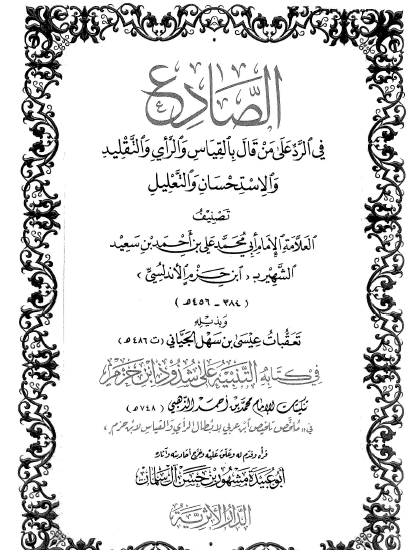 الصَّادِعُ
في الرَّدِّ عَلَى مَنْ قَالَ بِالقِيَاسِ وَالرَّأْيِ وَالتَّقْلِيدِ
وَالِاسْتِحْسَانِ وَالتَّعْلِيلِ
تَصْنِيفُ
العَلَّامَةِ الإِمَامِ أَبِي مُحَمَّدٍ عَلِيِّ بْنِ أَحْمَدَ بْنِ سَعِيدٍ
الشَّهِيرِ بـ «ابْنِ حَزْمٍ الأَنْدَلُسِيِّ»
(٣٨٤ - ٤٥٦هـ)
وَبِذَيْلِهِ
تَعَقُّبَاتُ عِيسَى بْنِ سَهْلٍ الجَيَّانِيِّ (ت ٤٨٦هـ)
فِي كِتَابِهِ التَّنْبِيهِ عَلَى شُذُوذِ ابْنِ حَزْمٍ
نُكَتٌ لِلْإِمَامِ مُحَمَّدِ بْنِ أَحْمَدَ الذَّهَبِيِّ (٧٤٨هـ)
في «مُلَخَّصِ تَلْخِيصِ ابْنِ عَرَبِي لِإِبْطَالِ الرَّأْيِ وَالقِيَاسِ لِابْنِ حَزْمٍ»
قرأه وقدم له وعلق عليه وخرج أحاديثه وآثاره
أَبُو عُبَيْدَةَ مَشْهُورُ بْنُ حَسَنٍ آلُ سَلْمَانَ
الدَّارُ الأَثَرِيَّةُ